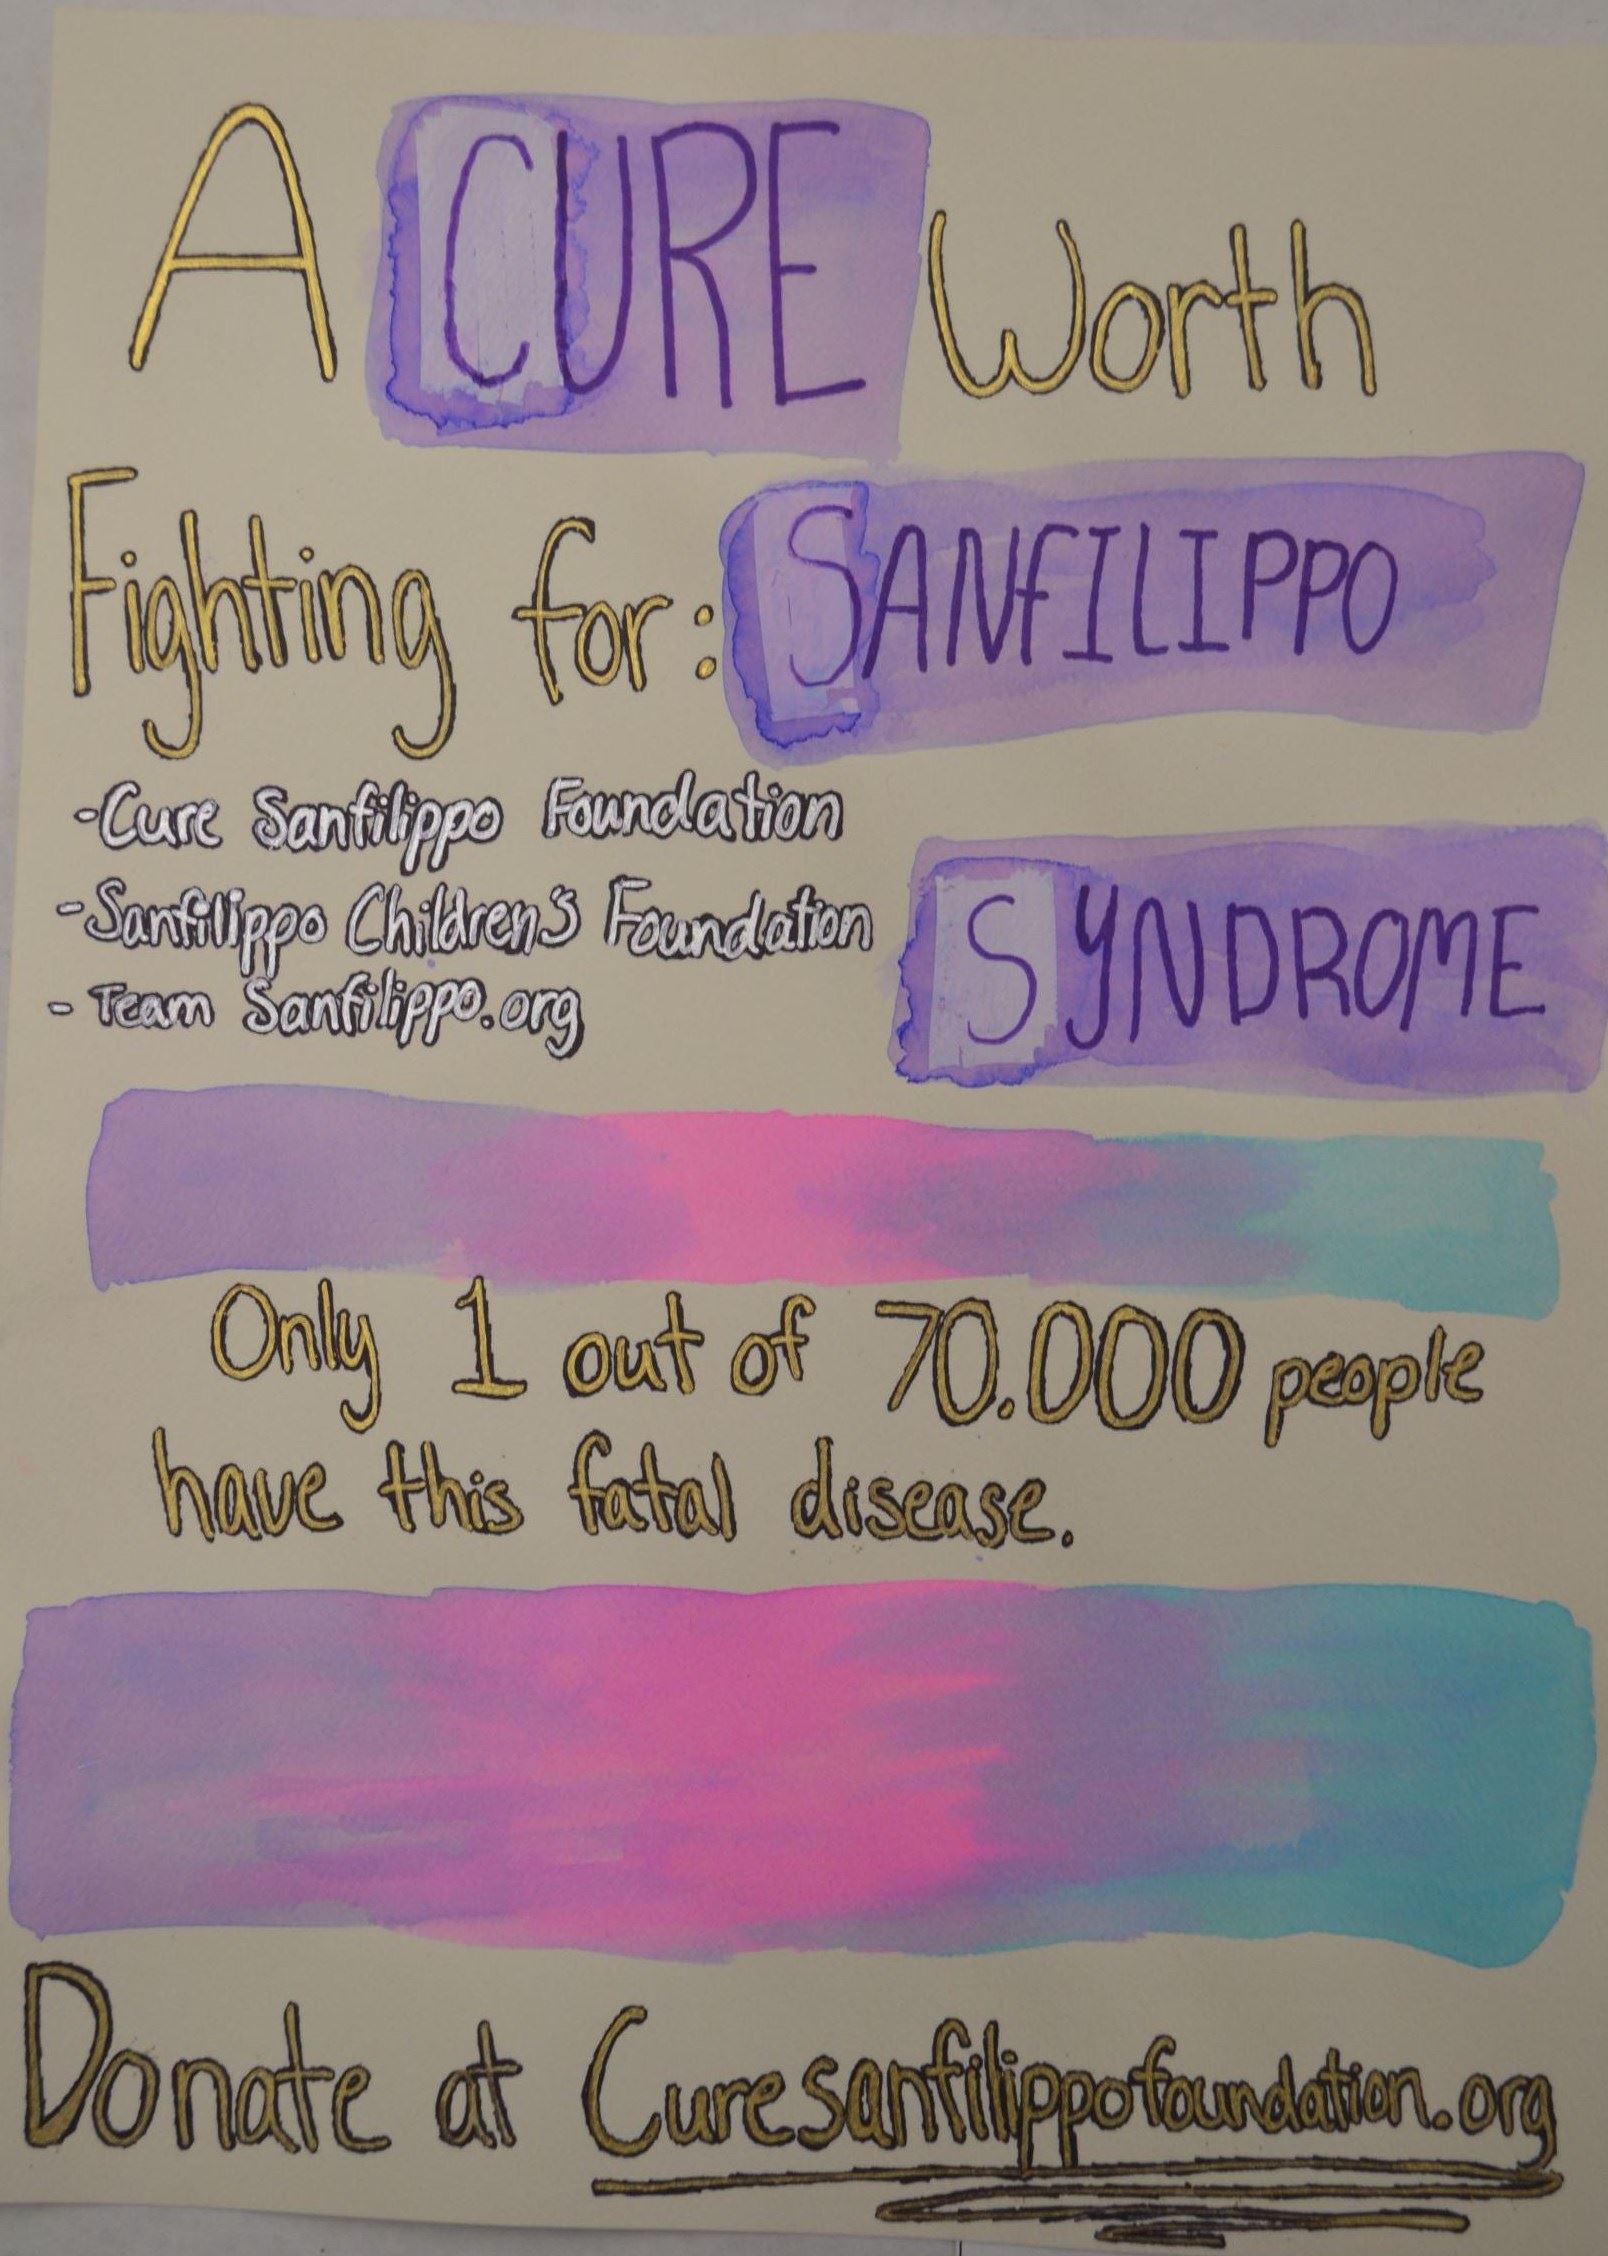 A CURE Worth
Fighting for: SANFILIPPO
SYNDROME
-Cure Sanfilippo Foundation
-Sanfilippo Children's Foundation
- Team Sanfilippo.org
Only 1 out of 70.000 people
have this fatal disease.
Donate at Curesanfilippofoundation.org